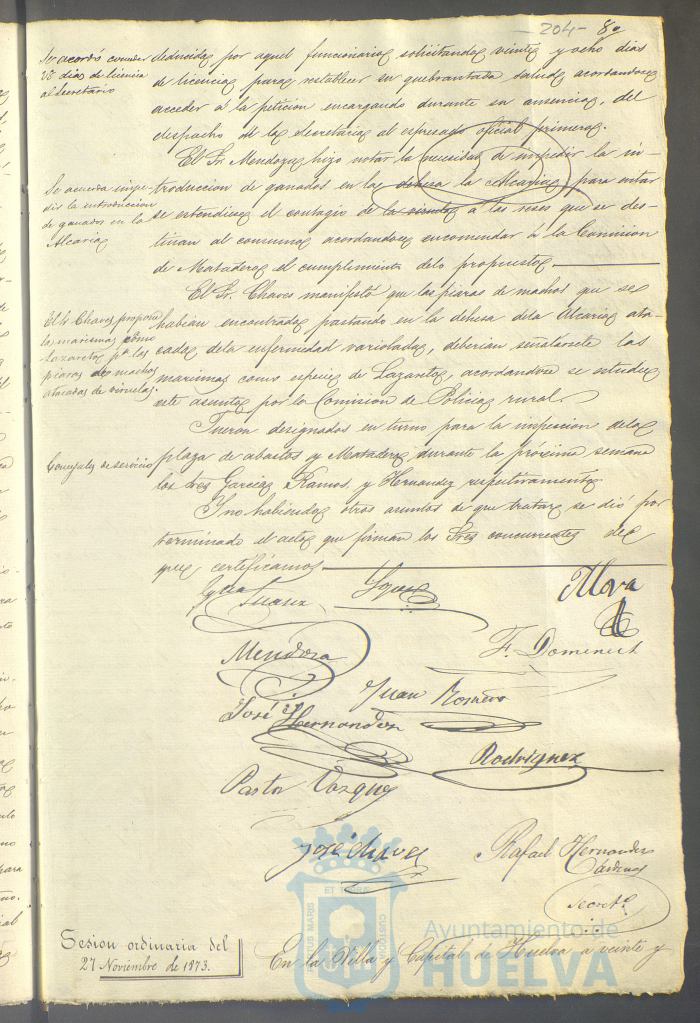 204- 80
Se acordó conceder
28 dias de licencia
al secretario
deducida por aquel funcionario solicitando veinte y ocho dias
de licencia para restablecer su quebrantada salud, acordandose
acceder á la peticion encargando durante su ausencia, del
despacho de la secretaria al espresado oficial primero.
El Sr. Mendoza hizo notar la necesidad de impedir la in-
Se acuerda impe-
dir la introduccion
de ganados en la
Alcaria
troduccion de ganados en la dehesa la Alcaria para evitar
se estendiese el contagio de la viruela a las reses que se des-
tinan al consumo acordandose encomendar á la Comision
de Matadero el cumplimiento delo propuesto
El Sr. Chaves manifestó que las piaras de machos que se
El Sr Chaves propone
las marismas como
lazareto pa. las
piaras de machos
atacadas de viruelas
habian encontrado pastando en la dehesa dela Alcaria ata-
cadas dela enfermedad variolosa, deberian señalarsele las
marismas como especie de Lazareto, acordandose se estudie
este asunto por la Comision de Policia rural.
Fueron designados en turno para la inspeccion dela
Concejales de servicio
plaza de abastos y Matadero durante la próxima semana
los Sres Garcia Ramos y Hernandez respectivamente.
Y no habiendo otros asuntos de que tratar se dió por
terminado el acto que firman los Sres concurrentes de
que certificamos
Suarez
Mora
Mendoza
F. Domenech
Juan Romero
José Hernandez
Rodriguez
Pastor Vazquez
José Chaves
Rafael Hernandez
Cárdenas
Secreto
Sesion ordinaria del
27 Noviembre de 1873.
En la Villa y Capital de Huelva a veinte y
Ayuntamiento de
HUELVA